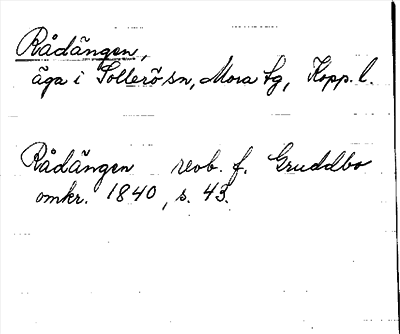 Rådängen,
äga i Sollerö sn, Mora tg, Kopp. l.
Rådängen reob. f. Gruddbo
omkr. 1840, s. 43.